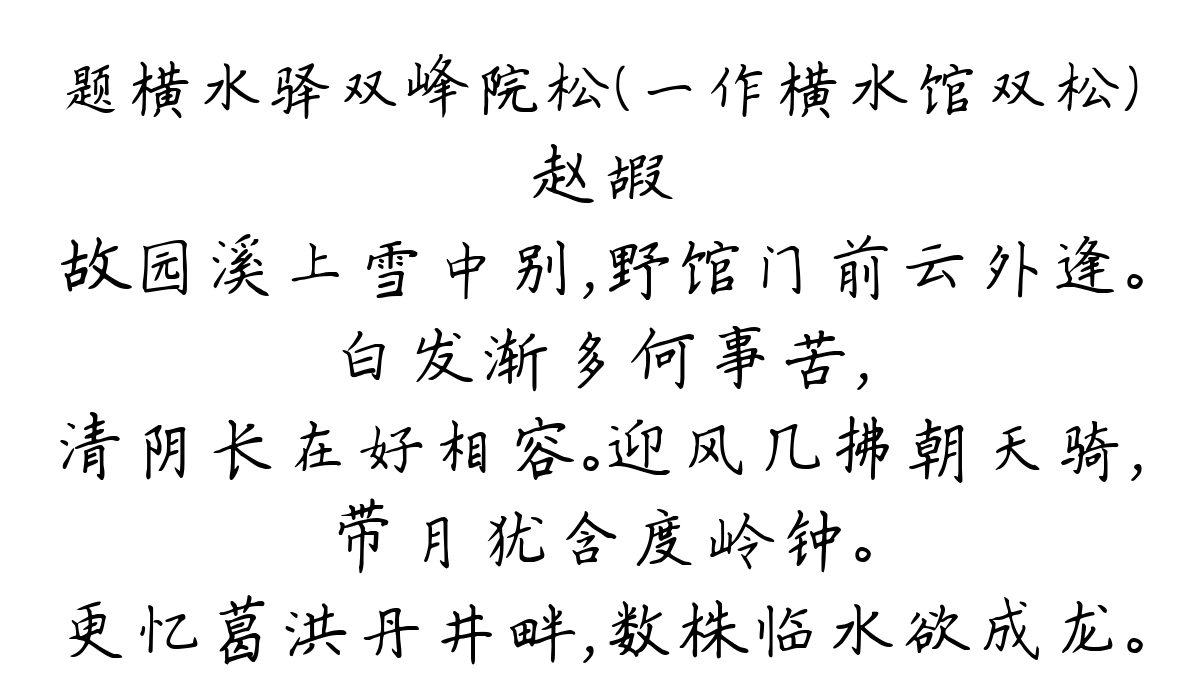 题横水驿双峰院松(一作横水馆双松)
赵嘏
故园溪上雪中别,野馆门前云外逢。
白发渐多何事苦,
清阴长在好相容。迎风几拂朝天骑,
带月犹含度岭钟。
更忆葛洪丹井畔,数株临水欲成龙。